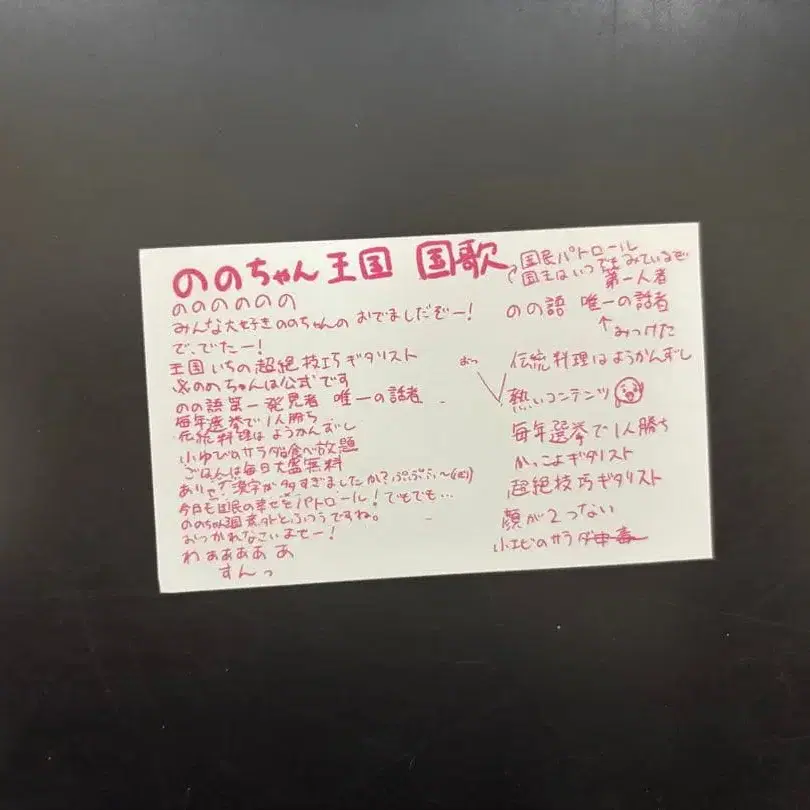 ののちゃん王国 国歌
のののののの
みんな大好きののちゃんの おでましだぞー!
で、でたー!
王国いちの超絶技巧ギタリスト
※ののちゃんは公式です
のの語第一発見者 唯一の話者
毎年選挙で1人勝ち
伝統料理はようかんずし
小ゆびのサラダ食べ放題
ごはんは毎日大盛無料
ありゃ?漢字が多すぎましたか?ぷぷぷ〜
今日も国民の幸せをパトロール!でもでも…
ののちゃん王国意外とふつうですね。
おつかれなさいませー!
わぁぁぁぁぁ
すんっ
国民パトロール
国王はいつでもみているぞ
第一人者
のの語 唯一の話者
↑みつけた
伝統料理はようかんずし
熱いコンテンツ
毎年選挙で1人勝ち
かっこよギタリスト
超絶技巧ギタリスト
顔が2つない
小エビのサラダ中毒